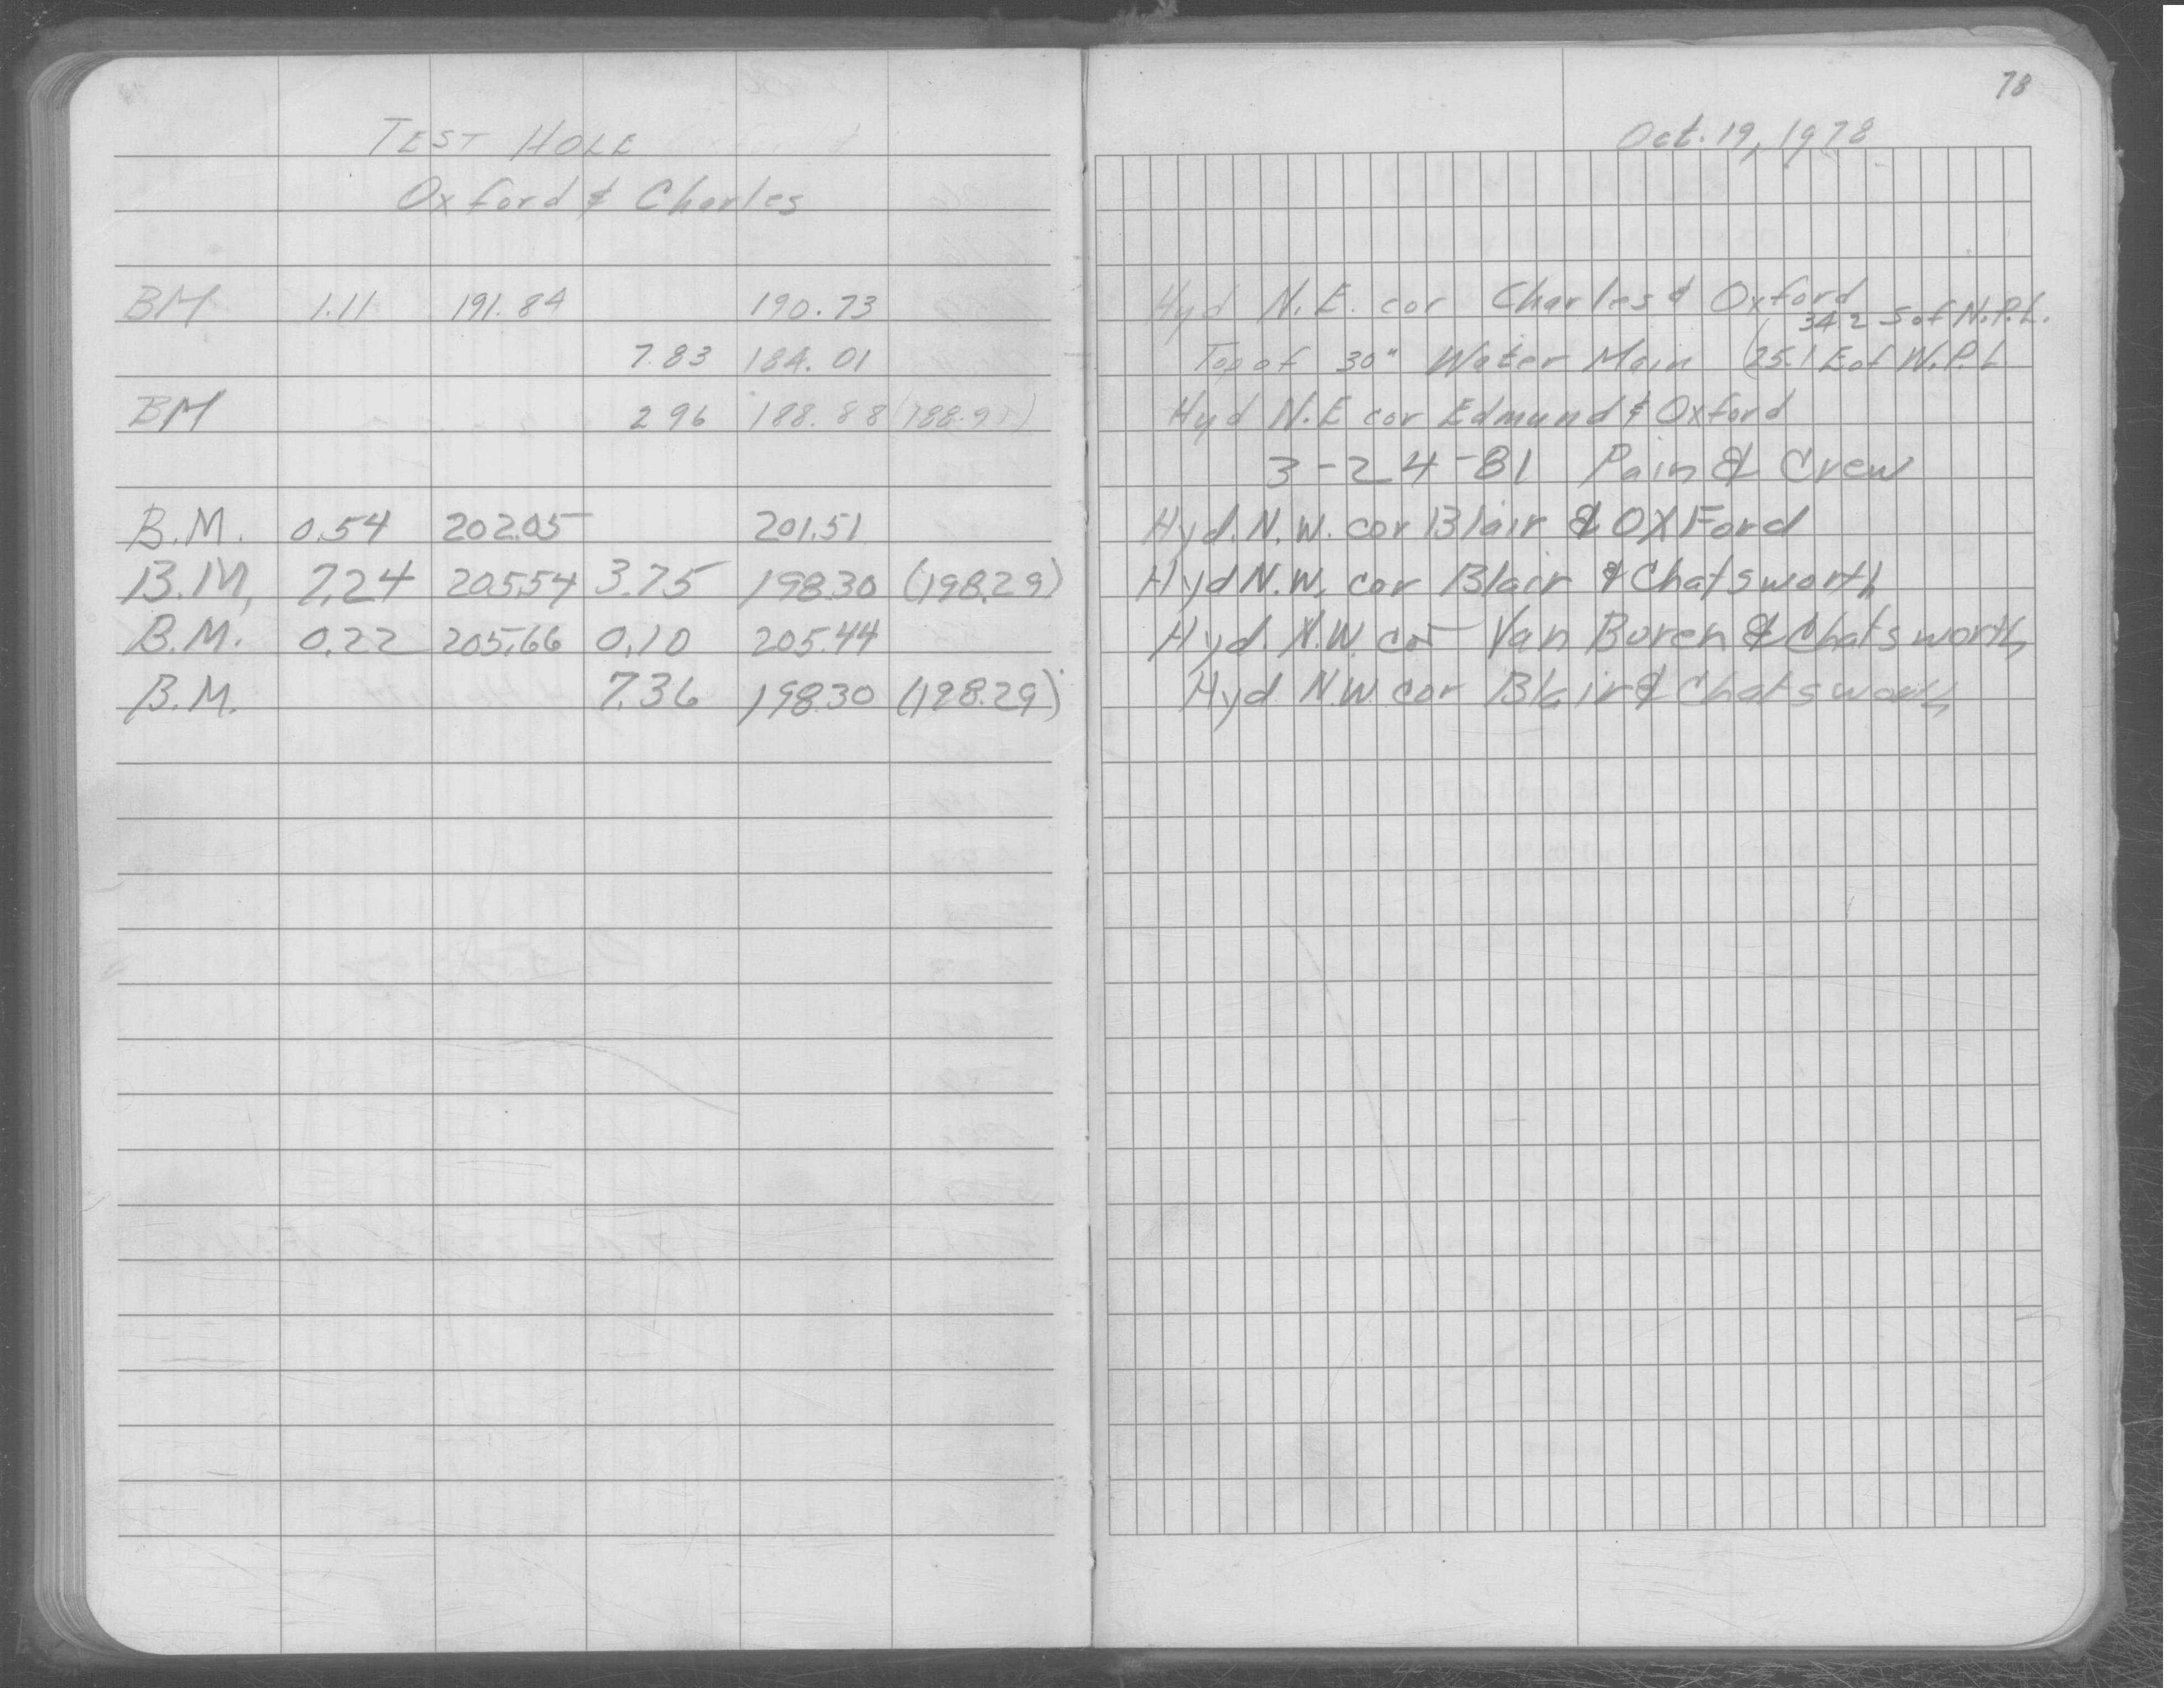 78
TEST HOLE Oct. 19, 1978
Oxford & Charles
BM 1.11 191.84 190.73 Hyd N.E. cor Charles & Oxford
34.2 S of N.P.L.
7.83 184.01 Top of 30" Water Main (25.1 E of W.P.L
BM 2.96 188.88 Hyd N.E cor Edmund & Oxford
3-24-81 Pain & Crew
B.M. 0.54 202.05 201.51 Hyd. N.W. cor Blair & OXFord
B.M. 7.24 205.54 3.75 198.30 (198.29) Hyd N.W. cor Blair & Chatsworth
B.M. 0.22 205.66 0.10 205.44 Hyd. N.W. cor Van Buren & Chatsworth
B.M. 7.36 198.30 (198.29) Hyd N.W. cor Blair & Chatsworth